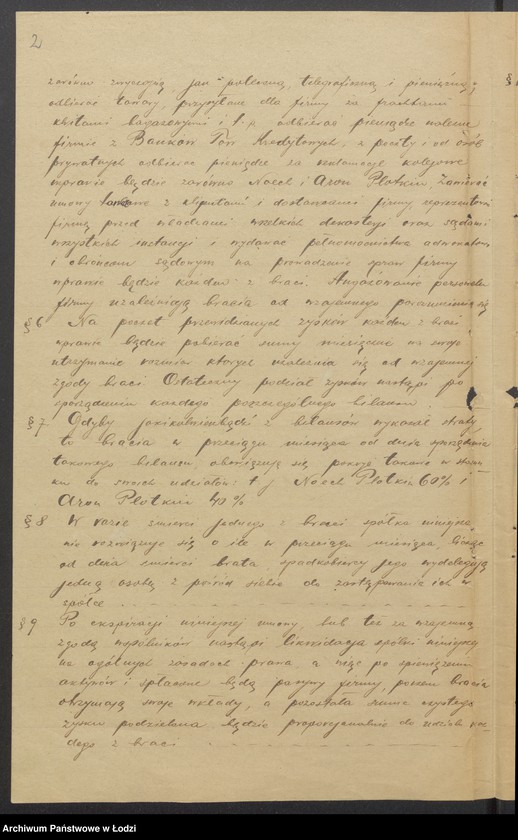 2
zarówno zwyczajną jak poleconą, telegraficzną i pieniężną;
odbierać towary, przysyłane dla firmy za frachtami
kwitami bagażowymi i t.p. odbierać pieniądze należne
firmie z Banków Tow Kredytowych, z poczty i od osób
prywatnych odbierać pieniądze za kolejowe
uprawnieni będzie zarówno Noech i Aron Płotkin, Zawierać
umowy z klijentami i dostawcami firmy reprezentować
firmę przed władzami wszelkich dekasterji oraz sądami
wszystkich instancji i wydawać pełnomocnictwa adwokatom
i obrońcom sądowym na prowadzenie spraw firmy
uprawnion będzie każden z braci. Angażowanie personelu
firmy uzależniają bracia od wzajemnego porozumienia się
§6 Na poczet przewidzianych zysków każden z braci
uprawnion będzie pobierać sumy miesięczne na swoje
utrzymanie rozmiar których uzależnia się od wzajemnej
zgody braci Ostateczny podział zysków nastąpi po
sporządzeniu każdego poszczególnego bilansu
§7 Gdyby jakikolwiekbądź z bilansów wykazał straty
to bracia w przeciągu miesiąca od dnia sporządzenia
takowego bilansu, obowiązują się pokryć takowe w stosun
ku do swoich udziałów: t j Noech Płotkin 60% i
Aron Płotkin 40%
§8 W razie śmierci jednego z braci spółka niniejsza
nie rozwiązuje się o ile w przeciągu miesiąca, licząc
od dnia śmierci brata, spadkobiercy jego wydelegują
jedną osobę z pośród siebie do zastępowania ich w
spółce
§9 Po ekspiracji niniejszej umowy, lub też za wzajemną
zgodą wspólników nastąpi likwidacja spółki niniejszej
na ogólnych zasadach prawa, a więc po spieniężeniu
aktywów i spłacone będą pasywy firmy, poczem bracia
otrzymają swoje wkłady, a pozostała suma czystego
zysku podzielona będzie proporcjonalnie do udziału każ
dego z braci
Archiwum Państwowe w Łodzi